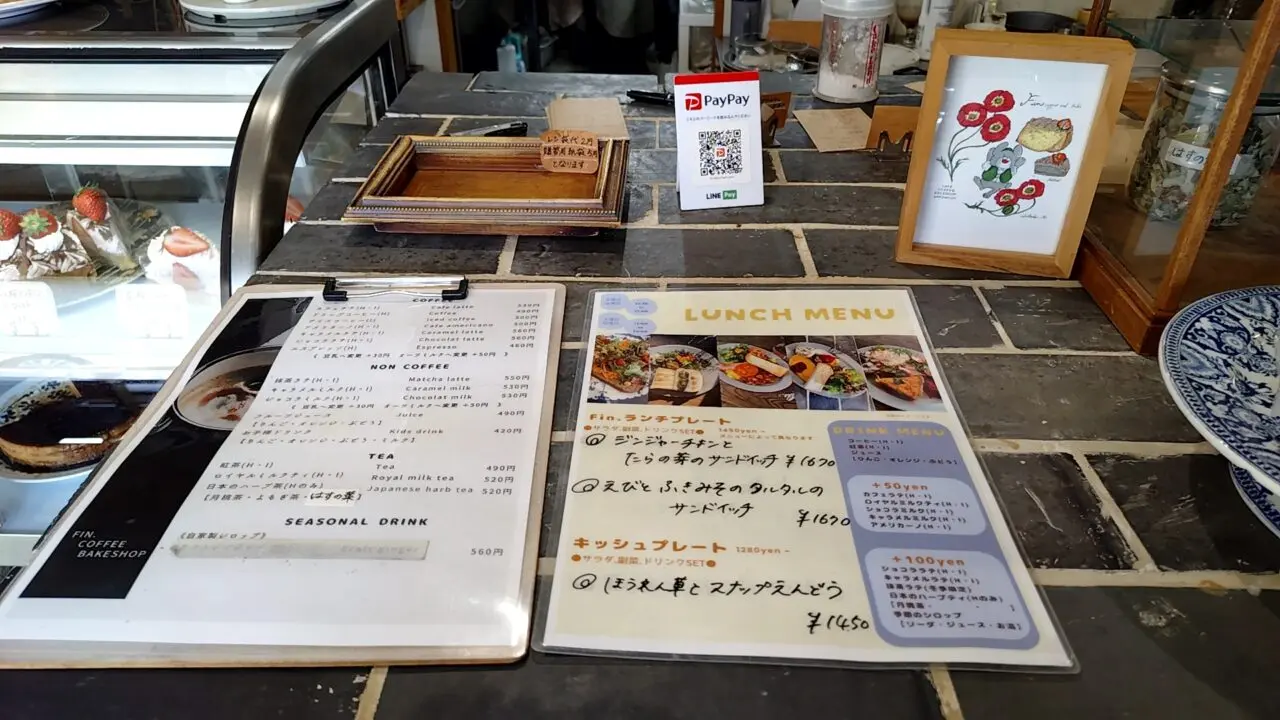 PayPay
LINE Pay
レジ袋代2円
となります
はすの
COFFEE
カフェラテ(H・I) Cafe latte 530円
Coffee 490円
Iced coffee 500円
アメリカーノ(H・I) Cafe americano 500円
Caramel latte 560円
Chocolat latte 560円
エスプレッソ(H) Espresso 460円
( 豆乳へ変更 +30円 オーツミルクへ変更 +50円 )
NON COFFEE
抹茶ラテ(H・I) Matcha latte 550円
キャラメルミルク(H・I) Caramel milk 530円
ショコラミルク(H・I) Chocolat milk 530円
( 豆乳へ変更 +30円 オーツミルクへ変更 +50円 )
フルーツジュース Juice 490円
[りんご・オレンジ・ぶどう]
お子様ドリンク Kids drink 420円
[りんご・オレンジ・ぶどう・ミルク]
TEA
紅茶(H・I) Tea 490円
ロイヤルミルクティ(H・I) Royal milk tea 520円
日本のハーブ茶(Hのみ) Japanese harb tea 520円
[月桃茶・よもぎ茶・はすの葉]
SEASONAL DRINK
《自家製シロップ》
560円
FIN.
COFFEE
BAKESHOP
LUNCH MENU
Fin.ランチプレート
●サラダ,副菜,ドリンクSET● 1450yen~
メニューによって異なります
@ ジンジャーチキンと
たらの芽のサンドイッチ ¥1670
@ えびと ふきみその タルタルの
サンドイッチ
¥1670
キッシュプレート 1280yen~
●サラダ,副菜,ドリンクSET●
@ ほうれん草と スナップえんどう
¥1450
DRINK MENU
コーヒー(H・I)
紅茶(H・I)
ジュース
[りんご・オレンジ・ぶどう]
+50yen
カフェラテ(H・I)
ロイヤルミルクティ(H・I)
ショコラミルク(H・I)
キャラメルミルク(H・I)
アメリカーノ(H・I)
+100yen
ショコララテ(H・I)
キャラメルラテ(H・I)
抹茶ラテ(冬季限定)
日本のハーブティ(Hのみ)
[月桃茶・ ・ ]
季節のシロップ
[ソーダ・ジュース・お湯]